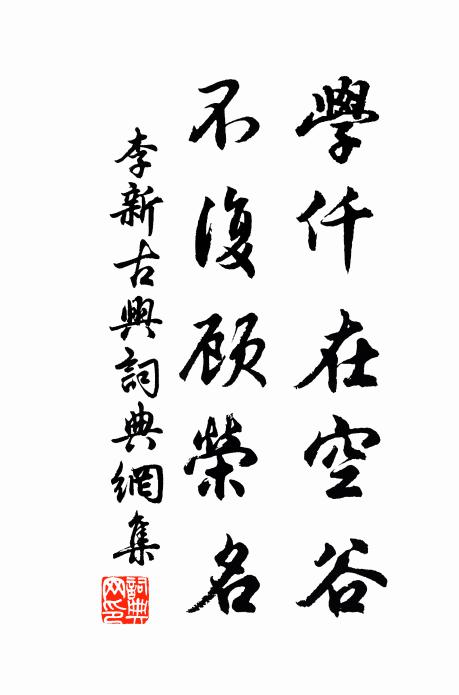 學仟在空谷
不復顧榮名
李新古興詞典網集
詞典網印